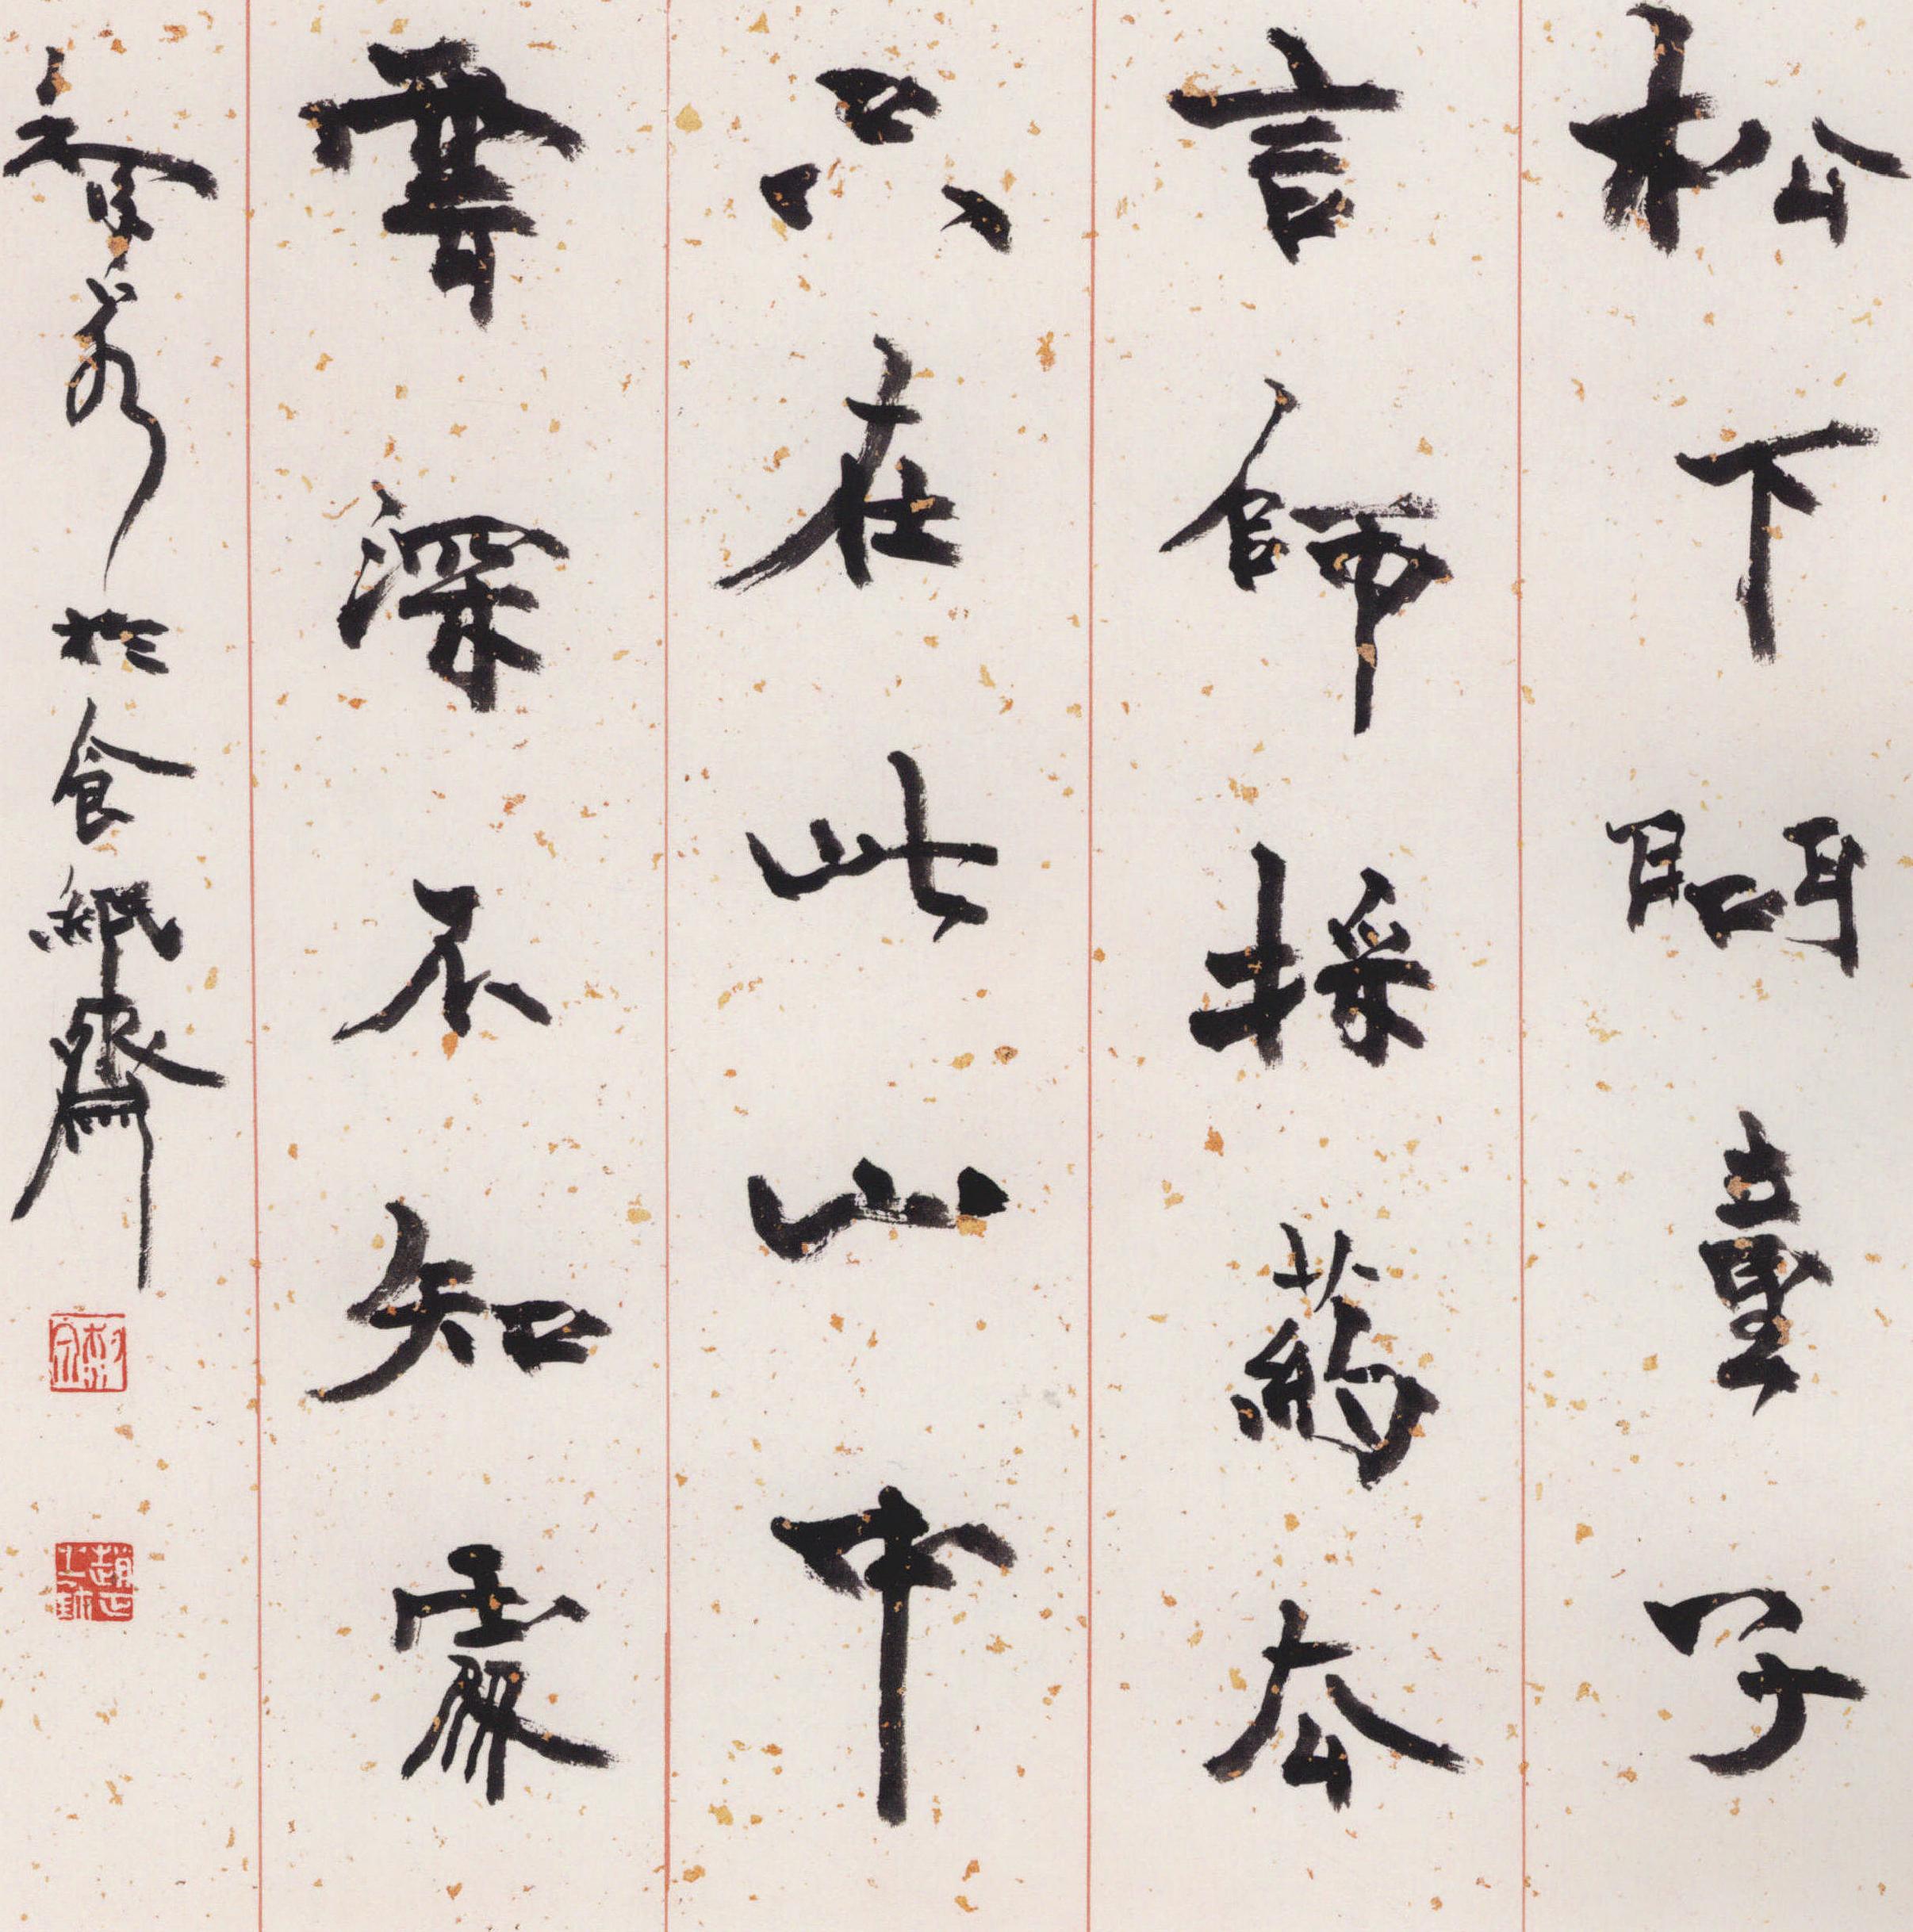 松下問童子
言師採藥去
只在此山中
雲深不知處
於食紙齋